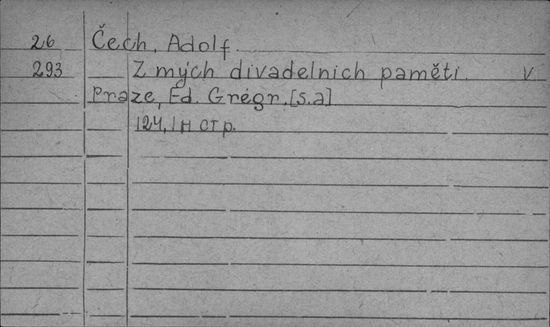 26 Čech, Adolf.
293 Z mých divadelních paměti. V
Praze, Ed. Grégr, [s.a]
124, 1 н стр.